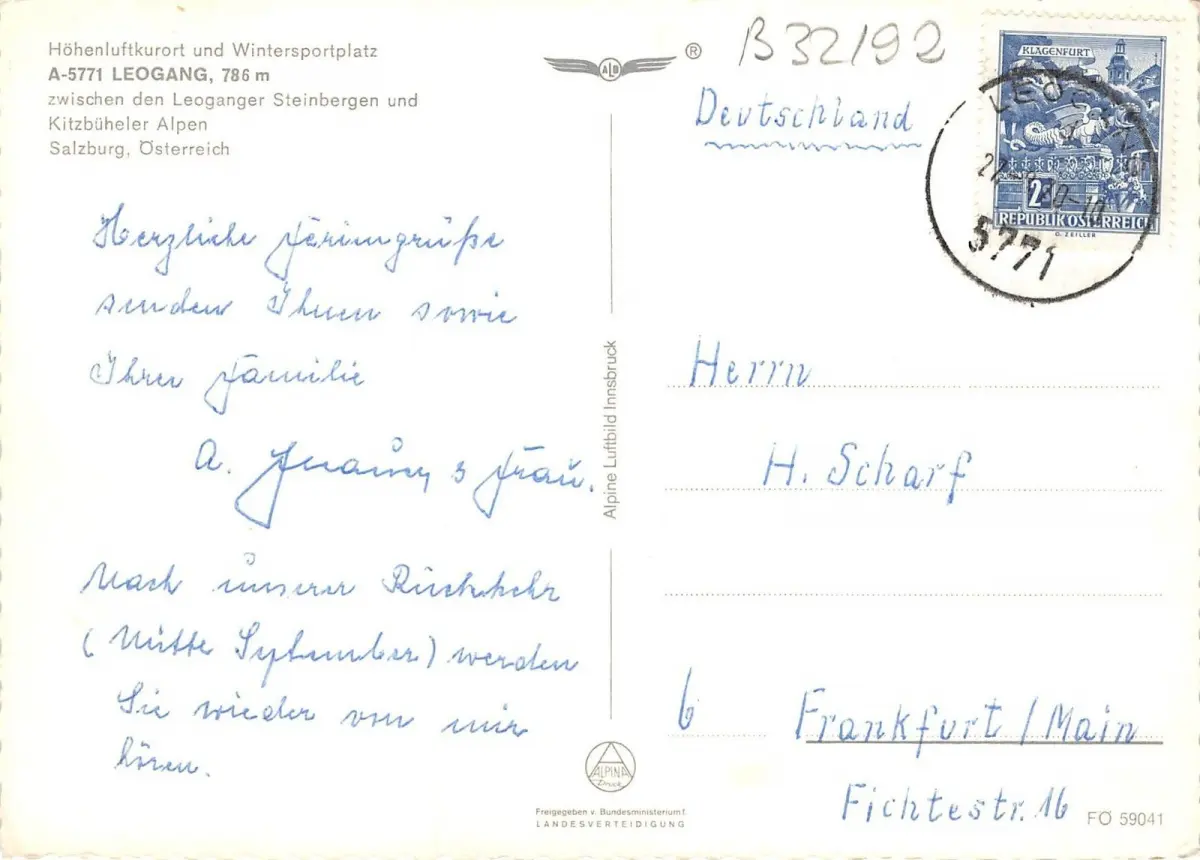 Höhenluftkurort und Wintersportplatz
A-5771 LEOGANG, 786 m
zwischen den Leoganger Steinbergen und
Kitzbüheler Alpen
Salzburg, Österreich
ALB
®
B 32/92
Deutschland
KLAGENFURT
2S
REPUBLIK ÖSTERREICH
O. ZEILLER
LEOGANG
5771
Herzliche Feriengrüße
senden Ihnen sowie
Ihrer Familie
A. & Frau.
Nach unserer Rückkehr
(Mitte September) werden
Sie wieder von mir
hören.
Alpine Luftbild Innsbruck
Herrn
H. Scharf
6 Frankfurt/Main
Fichtestr. 16
ALPINA
Druck
Freigegeben v. Bundesministerium f.
LANDESVERTEIDIGUNG
FÖ 59041